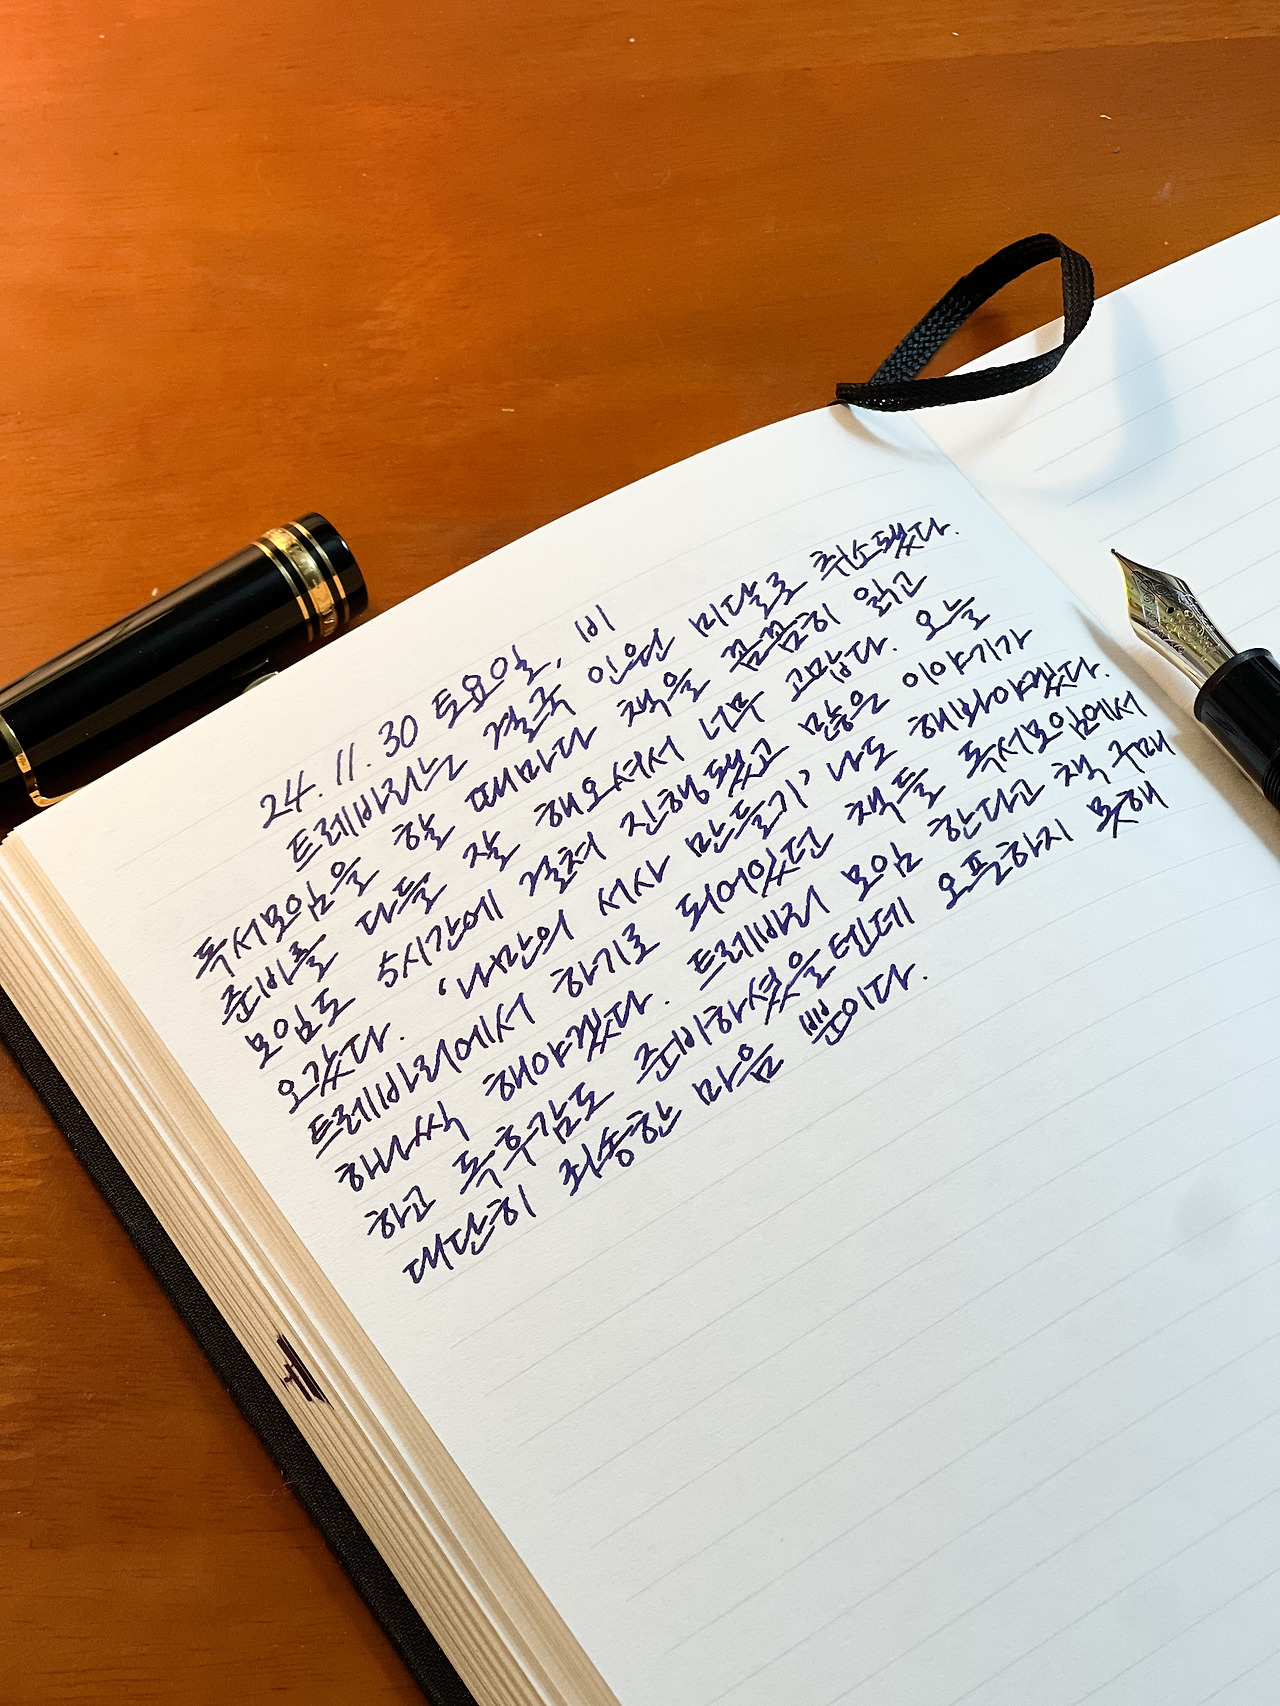 24. 11. 30 토요일, 비
트레바리는 결국 인원 미달로 취소됐다.
독서모임을 할 때마다 책을 꼼꼼히 읽고
준비를 다들 잘 해오셔서 너무 고맙다. 오늘
모임도 5시간에 걸쳐 진행됐고 많은 이야기가
오갔다. '나만의 서사 만들기' 나도 해봐야겠다.
트레바리에서 하기로 되어있던 책들 독서모임에서
하나씩 해야겠다. 트레바리 모임 한다고 책 구매
하고 독후감도 준비하셨을텐데 오픈하지 못해
대단히 죄송한 마음 뿐이다.